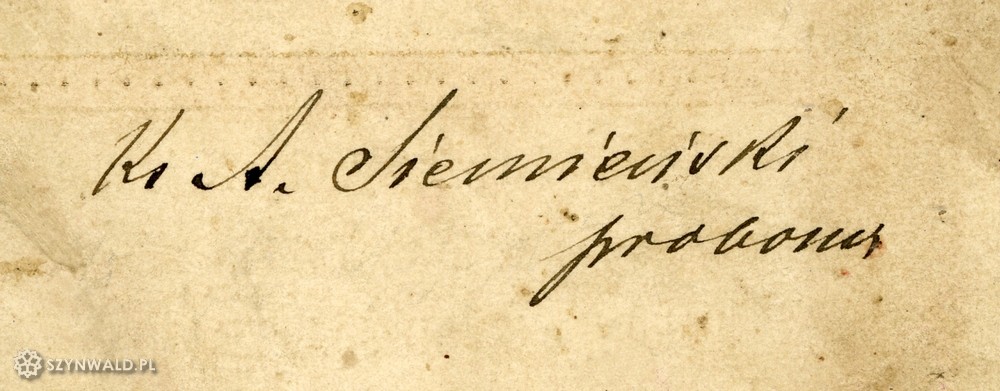 Ks A. Siemieński
proboszcz
SZYNWALD.PL